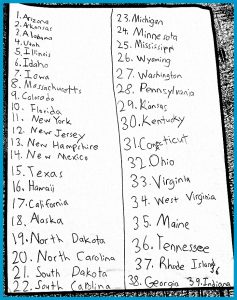 1. Arizona
2. Arkansas
3. Alabama
4. Utah
5. Illinois
6. Idaho
7. Iowa
8. Massachusetts
9. Colorado
10. Florida
11. New York
12. New Jersey
13. New Hampshire
14. New Mexico
15. Texas
16. Hawaii
17. California
18. Alaska
19. North Dakota
20. North Carolina
21. South Dakota
22. South Carolina
23. Michigan
24. Minnesota
25. Mississippi
26. Wyoming
27. Washington
28. Pennsylvania
29. Kansas
30. Kentucky
31. Conneticut
32. Ohio
33. Virginia
34. West Virginia
35. Maine
36. Tennessee
37. Rhode Island
38. Georgia 39. Indiana